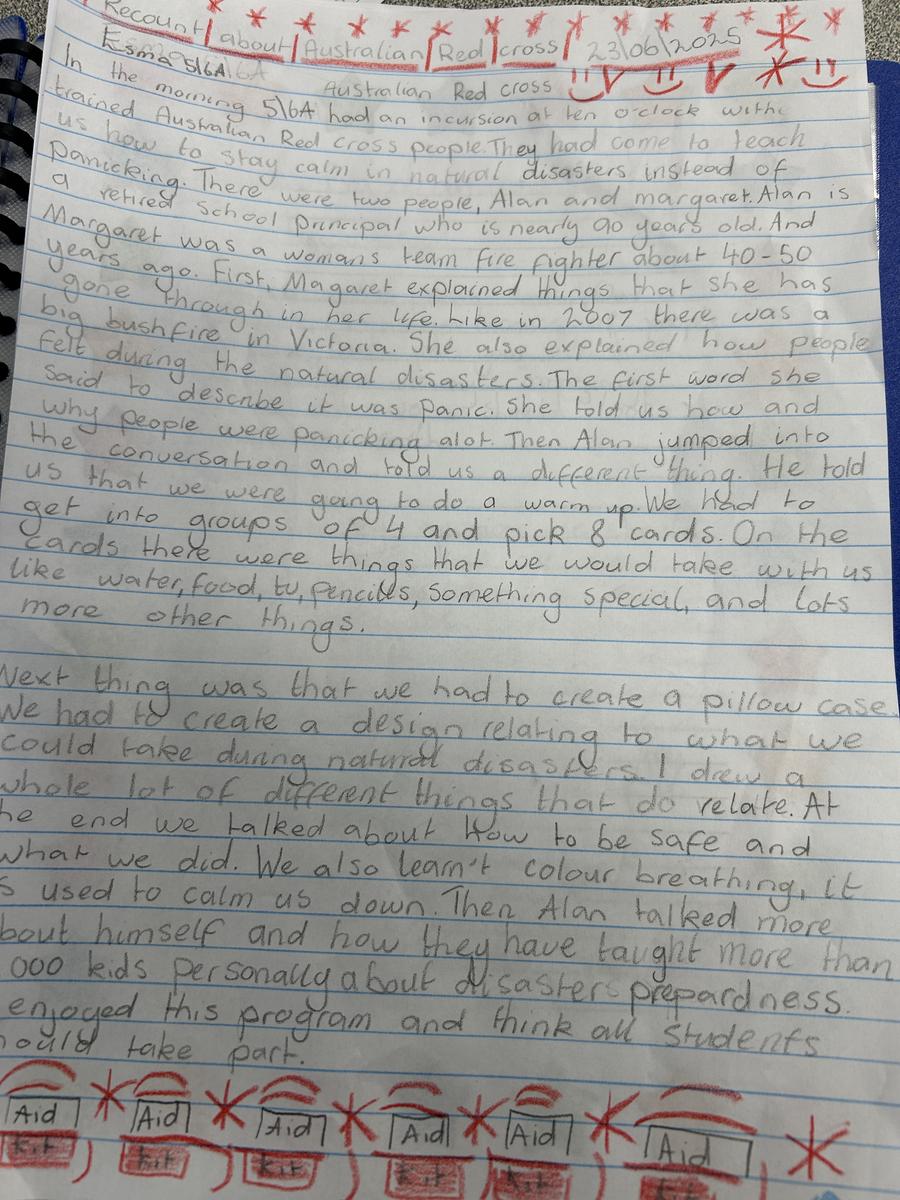 Recount about Australian Red cross 23/06/2025
Esma 5/6A
Australian Red cross
In the morning 5/6A had an incursion at ten o'clock withe
trained Australian Red cross people. They had come to teach
us how to stay calm in natural disasters instead of
panicking. There were two people, Alan and margaret. Alan is
a retired school principal who is nearly 90 years old. And
Margaret was a womans team fire fighter about 40-50
years ago. First, Magaret explained things that she has
gone through in her life. Like in 2007 there was a
big bushfire in Victoria. She also explained how people
felt during the natural disasters. The first word she
said to describe it was panic. She told us how and
why people were panicking alot. Then Alan jumped into
the conversation and told us a different thing. He told
us that we were going to do a warm up. We had to
get into groups of 4 and pick 8 cards. On the
cards there were things that we would take with us
like water, food, tv, penciles, something special, and lots
more other things.
Next thing was that we had to create a pillow case.
We had to create a design relating to what we
could take during natural disasters. I drew a
whole lot of different things that do relate. At
he end we talked about How to be safe and
what we did. We also learn't colour breathing, it
s used to calm us down. Then Alan talked more
bout himself and how they have taught more than
000 kids personally about disasters prepardness.
enjoyed this program and think all students
hould take part.
Aid Aid Aid Aid Aid Aid
kit kit kit kit kit kit